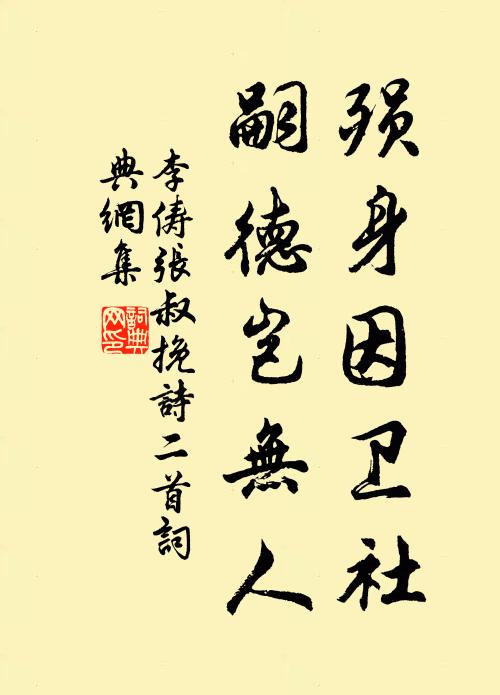 殒身因卫社
嗣德岂無人
李俦張叔挽詩二首詞
典網集
詞典
网印